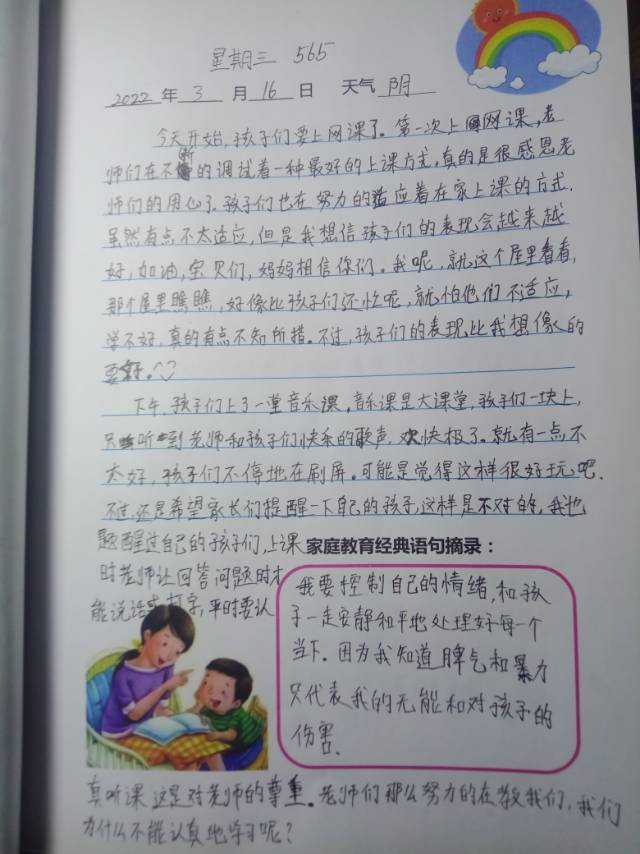 星期三 565
2022 年 3 月 16 日 天气 阴
今天开始,孩子们要上网课了。第一次上网课,老
师们在不断的调试着一种最好的上课方式,真的是很感恩老
师们的用心了。孩子们也在努力的适应着在家上课的方式.
虽然有点不太适应,但是我想信孩子们的表现会越来越
好,加油,宝贝们,妈妈相信你们。我呢,就这个屋里看看,
那个屋里瞧瞧,好像比孩子们还忙呢,就怕他们不适应,
学不好,真的有点不知所措。不过,孩子们的表现比我想像的
要好。
下午,孩子们上了一堂音乐课,音乐课是大课堂,孩子们一块上,
只听到老师和孩子们快乐的歌声,欢快极了。就有一点不
太好,孩子们不停地在刷屏。可能是觉得这样很好玩吧.
不过,还是希望家长们提醒一下自己的孩子,这样是不对的,我也
题醒过自己的孩子们,上课
时老师让回答问题时才
能说话或打字,平时要认
家庭教育经典语句摘录:
我要控制自己的情绪,和孩
子一走安静和平地处理好每一个
当下.因为我知道脾气和暴力
只代表我的无能和对孩子的
伤害.
真听课这是对老师的尊重。老师们那么努力的在教我们,我们
为什么不能认真地学习呢?